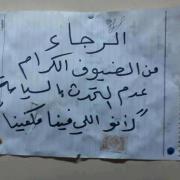 الرجاء
من الضيوف الكرام
عدم التحدث بالسياسة
"لأنو اللي فينا مكفينا"